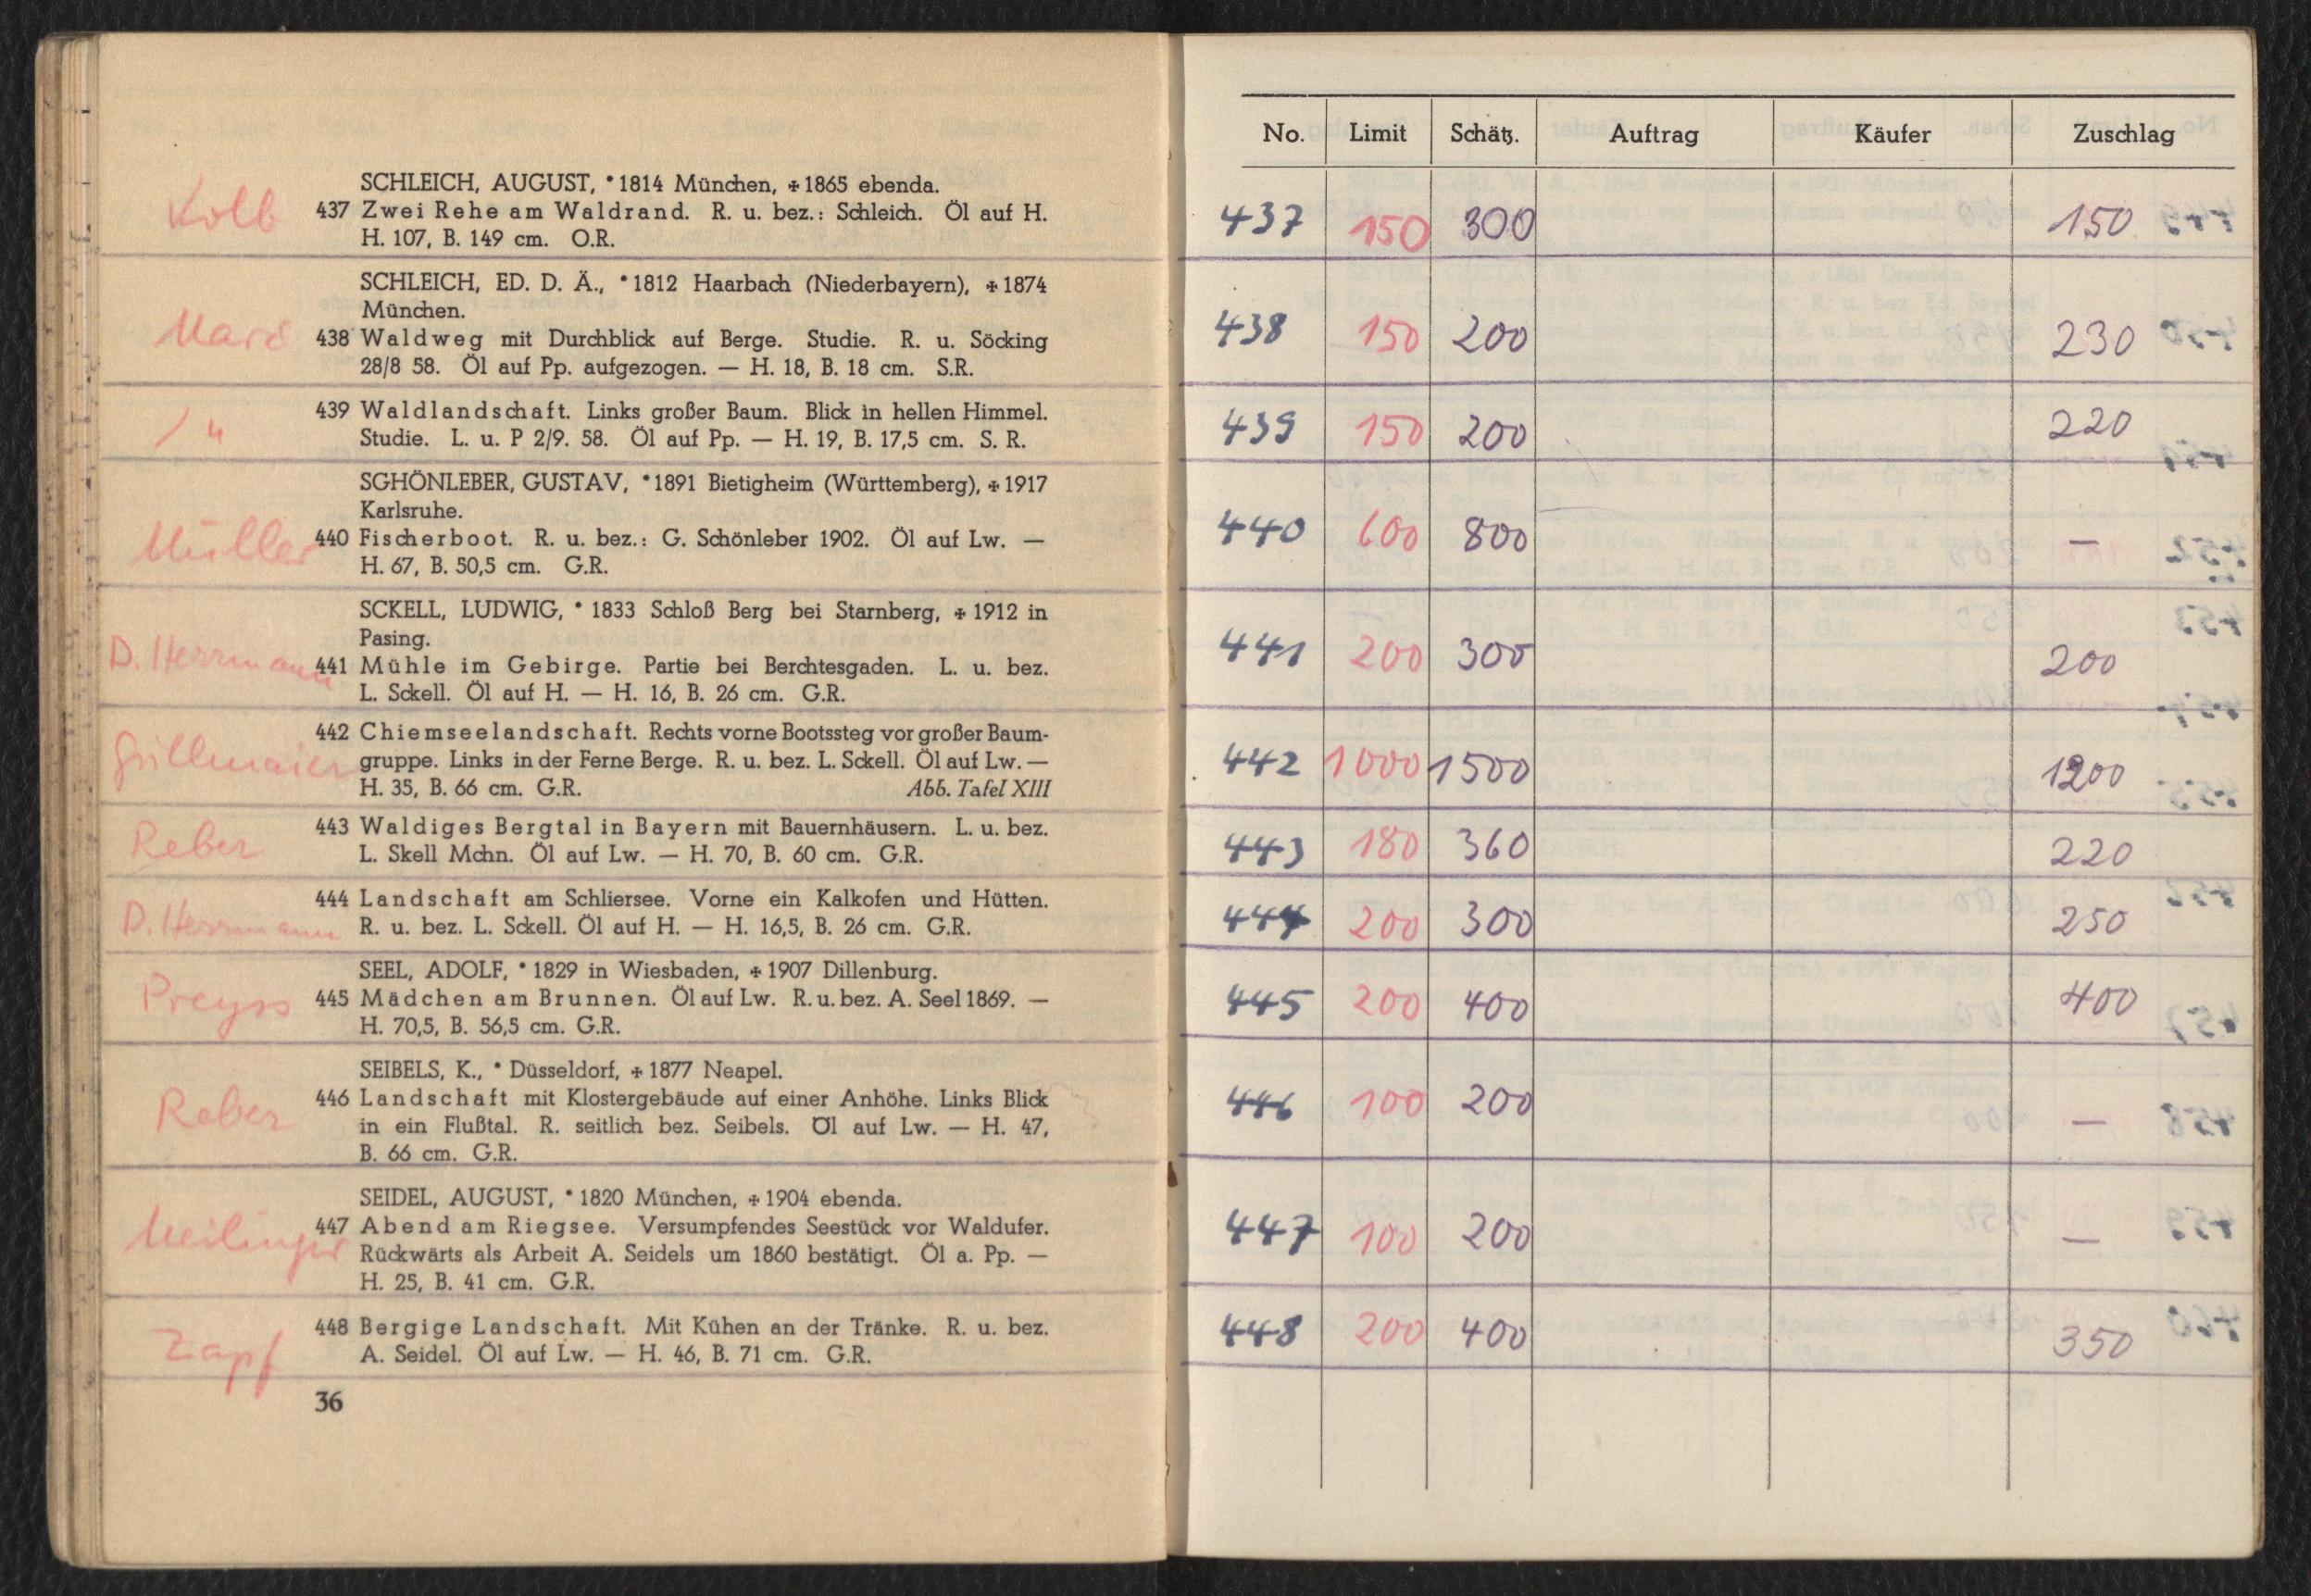 Kolb
SCHLEICH, AUGUST, *1814 München, ✠1865 ebenda.
437 Zwei Rehe am Waldrand. R. u. bez.: Schleich. Öl auf H.
H. 107, B. 149 cm. O.R.
SCHLEICH, ED. D. Ä., *1812 Haarbach (Niederbayern), ✠1874
München.
438 Waldweg mit Durchblick auf Berge. Studie. R. u. Söcking
28/8 58. Öl auf Pp. aufgezogen. — H. 18, B. 18 cm. S.R.
/ "
439 Waldlandschaft. Links großer Baum. Blick in hellen Himmel.
Studie. L. u. P 2/9. 58. Öl auf Pp. — H. 19, B. 17,5 cm. S. R.
SGHÖNLEBER, GUSTAV, *1891 Bietigheim (Württemberg), ✠1917
Karlsruhe.
Müller
440 Fischerboot. R. u. bez.: G. Schönleber 1902. Öl auf Lw. —
H. 67, B. 50,5 cm. G.R.
SCKELL, LUDWIG, * 1833 Schloß Berg bei Starnberg, ✠ 1912 in
Pasing.
D. Herrmann
441 Mühle im Gebirge. Partie bei Berchtesgaden. L. u. bez.
L. Sckell. Öl auf H. — H. 16, B. 26 cm. G.R.
Grillmaier
442 Chiemseelandschaft. Rechts vorne Bootssteg vor großer Baum-
gruppe. Links in der Ferne Berge. R. u. bez. L. Sckell. Öl auf Lw. —
H. 35, B. 66 cm. G.R. Abb. Tafel XIII
Reber
443 Waldiges Bergtal in Bayern mit Bauernhäusern. L. u. bez.
L. Skell Mchn. Öl auf Lw. — H. 70, B. 60 cm. G.R.
D. Herrmann
444 Landschaft am Schliersee. Vorne ein Kalkofen und Hütten.
R. u. bez. L. Sckell. Öl auf H. — H. 16,5, B. 26 cm. G.R.
SEEL, ADOLF, *1829 in Wiesbaden, ✠1907 Dillenburg.
Preyss
445 Mädchen am Brunnen. Öl auf Lw. R. u. bez. A. Seel 1869. —
H. 70,5, B. 56,5 cm. G.R.
SEIBELS, K., * Düsseldorf, ✠1877 Neapel.
Reber
446 Landschaft mit Klostergebäude auf einer Anhöhe. Links Blick
in ein Flußtal. R. seitlich bez. Seibels. Öl auf Lw. — H. 47,
B. 66 cm. G.R.
SEIDEL, AUGUST, *1820 München, ✠1904 ebenda.
Meilinger
447 Abend am Riegsee. Versumpfendes Seestück vor Waldufer.
Rückwärts als Arbeit A. Seidels um 1860 bestätigt. Öl a. Pp. —
H. 25, B. 41 cm. G.R.
Zapf
448 Bergige Landschaft. Mit Kühen an der Tränke. R. u. bez.
A. Seidel. Öl auf Lw. — H. 46, B. 71 cm. G.R.
36
No. Limit Schätz. Auftrag Käufer Zuschlag
437 150 300 150
438 150 200 230
439 150 200 220
440 600 800 —
441 200 300 200
442 1000 1500 1200
443 180 360 220
444 200 300 250
445 200 400 400
446 100 200 —
447 100 200 —
448 200 400 350